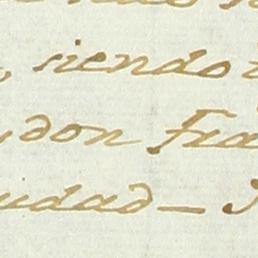 , siendo
don Fra
udad —